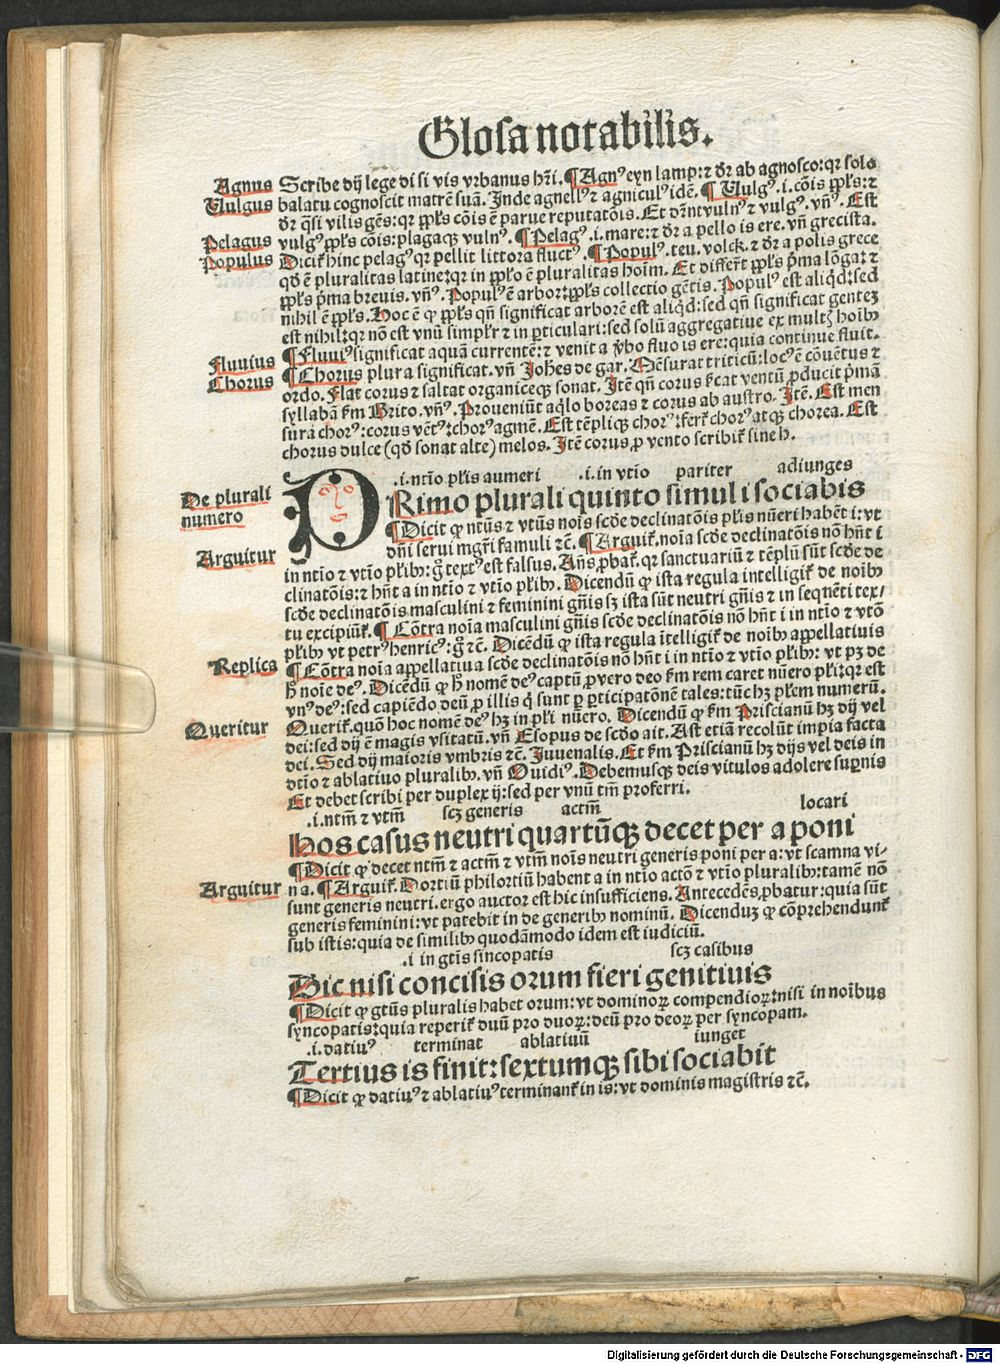 Glosa notabilis.
Agnus
Scribe dij lege di si vis vrbanus hr̄i. ¶ Agnꝰ eyn lamp: ⁊ dr̄ ab agnosco: qr solo
Uulgus
balatu cognoscit matrē suā. Inde agnellꝰ ⁊ agniculꝰ idē. ¶ Uulgꝰ .i. cōis ppl̄s: ⁊
dr̄ qs̄i vilis gēs: qr ppl̄s cōis ē parue reputatōis. Et dr̄nt vulnꝰ ⁊ vulgꝰ. vn̄ꝰ. Est
Pelagus
vulgꝰ ppl̄s cōis: plagaqꝫ vulnꝰ. ¶ Pelagꝰ .i. mare: ⁊ dr̄ a pello is ere. vn̄ grecista.
Populus
Dicit̄ hinc pelagꝰ qr pellit littora fluctꝰ. ¶ Populꝰ. teu. volck. ⁊ dr̄ a polis grece
qd̄ ē pluralitas latine: qr in ppl̄o ē pluralitas hoīm. Et differt̄ ppl̄s p̄ma lōga: ⁊
ppl̄s p̄ma breuis. vn̄ꝰ. Populꝰ ē arbor: ppl̄s collectio gētis. Populꝰ est aliqd̄: sed
nihil ē ppl̄s. Hoc ē ꝙ ppl̄s qn̄ significat arborē est aliqd̄: sed qn̄ significat genteꝫ
est nihil: qr nō est vnū simpl̄r ⁊ in ꝑticulari: sed solū aggregatiue ex multꝭ hoībꝫ
Fluuius
¶ Fluuiꝰ significat aquā currentē: ⁊ venit a v̄bo fluo is ere: quia continue fluit.
Chorus
¶ Chorus plura significat. vn̄ Joh̄es de gar. Mēsurat triticū: locꝰ ē cōuētus ⁊
ordo. Flat corus ⁊ saltat organiceqꝫ sonat. Itē qn̄ corus sc̄cat ventū ꝓducit p̄mā
syllabā s̄m Brito. vn̄ꝰ. Proueniūt aq̄lo boreas ⁊ corus ab austro. Itē. Est men
sura chorꝰ: corus vētꝰ: chorꝰ agmē. Est tēpliqꝫ chorꝰ: fert̄ chorꝰ atqꝫ chorea. Est
chorus dulce (qd̄ sonat alte) melos. Itē corus ꝓ vento scribit̄ sine h.
.i. ntīo pl̄is numeri .i. in vtīo pariter adiunges
De plurali
numero
PRimo plurali quinto simul i sociabis
¶ Dicit ꝙ ntūs ⁊ vtūs noīs sc̄de declinatōis pl̄is nūeri habēt i: vt
Arguitur
dn̄i serui mgr̄i famuli ⁊c̄. ¶ Arguit̄. noīa sc̄de declinatōis nō hn̄t i
in ntīo ⁊ vtīo pl̄ibꝫ: g̊ textꝰ est falsus. An̄s ꝓbat̄. qr sanctuariū ⁊ tēplū sūt sc̄de de
clinatōis: ⁊ hn̄t a in ntīo ⁊ vtīo pl̄ibꝫ. Dicendū ꝙ ista regula intelligit̄ de noībꝫ
sc̄de declinatōis masculini ⁊ feminini gn̄is sꝫ ista sūt neutri gn̄is ⁊ in seqn̄ti tex/
tu excipiūt̄. ¶ Cōtra noīa masculini gn̄is sc̄de declinatōis nō hn̄t i in ntīo ⁊ vtō
pl̄ibꝫ vt petrꝰ henricꝰ: g̊ ⁊c̄. Dicēdū ꝙ ista regula ītelligit̄ de noībꝫ appellatiuis
Replica
¶ Cōtra noīa appellatiua sc̄de declinatōis nō hn̄t i in ntīo ⁊ vtīo pl̄ibꝫ: vt pꝫ de
h̊ noīe deꝰ. Dicēdū ꝙ h̊ nomē deꝰ captū ꝓ vero deo s̄m rem caret nūero pl̄i: qr est
vnꝰ deꝰ: sed capiēdo deū ꝓ illis q̄ sunt ꝑ ꝑticipatōnē tales: tūc hꝫ pl̄em numerū.
Queritur
Querit̄. quō hoc nomē deꝰ hꝫ in pl̄i nūero. Dicendū ꝙ s̄m Priscianū hꝫ dij vel
dei: sed dij ē magis vsitatū. vn̄ Esopus de sc̄do ait. Ast etiā recolūt impia facta
dei. Sed dij maioris vmbris ⁊c̄. Juuenalis. Et s̄m Priscianū hꝫ dijs vel deis in
dtīo ⁊ ablatiuo pluralibꝫ. vn̄ Ouidiꝰ. Debemusqꝫ deis vitulos adolere suꝑnis
Et debet scribi per duplex ij: sed per vnū tm̄ proferri.
.i. ntm̄ ⁊ vtm̄ scꝫ generis actm̄ locari
Hos casus neutri quartūqꝫ decet per a poni
¶ Dicit ꝙ decet ntm̄ ⁊ actm̄ ⁊ vtm̄ noīs neutri generis poni per a: vt scamna vi/
Arguitur
na. ¶ Arguit̄. Dortiū philortiū habent a in ntīo actō ⁊ vtīo pluralibꝫ: tamē nō
sunt generis neutri. ergo auctor est hic insufficiens. Antecedēs ꝓbatur: quia sūt
generis feminini: vt patebit in de generibꝫ nominū. Dicenduꝫ ꝙ cōprehendunt̄
sub istis: quia de similibꝫ quodāmodo idem est iudiciū.
.i in gtīs sincopatis scꝫ casibus
Dic nisi concisis orum fieri genitiuis
¶ Dicit ꝙ gtūs pluralis habet orum: vt dominoꝝ compendioꝝ: nisi in noībus
syncopatis: quia reperit̄ duū pro duoꝝ: deū pro deoꝝ per syncopam.
.i. datiuꝰ terminat ablatiuū iunget
Tertius is finit: sextumqꝫ sibi sociabit
¶ Dicit ꝙ datiuꝰ ⁊ ablatiuꝰ terminant̄ in is: vt dominis magistris ⁊c̄.
Digitalisierung gefördert durch die Deutsche Forschungsgemeinschaft - DFG